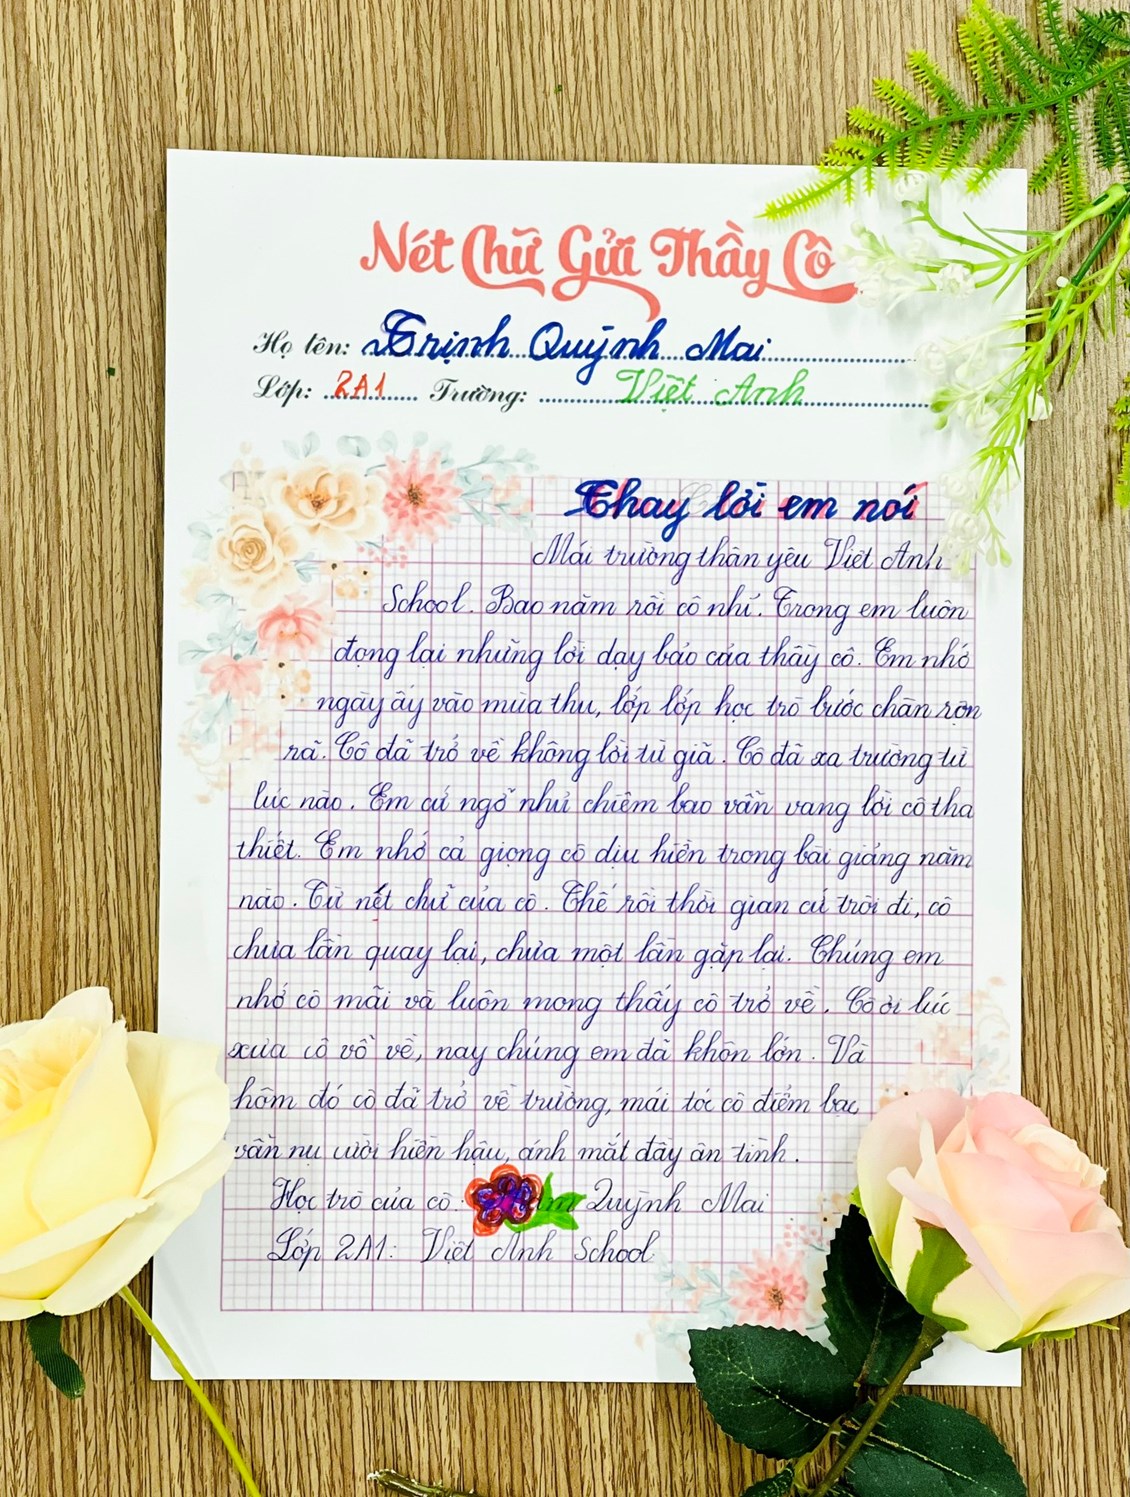 Nét Chữ Gửi Thầy Cô
Họ tên: Trịnh Quỳnh Mai
Lớp: 2A1 Trường: Việt Anh
Thay lời em nói
Mái trường thân yêu Việt Anh
School. Bao năm rồi cô nhỉ. Trong em luôn
đọng lại những lời dạy bảo của thầy cô. Em nhớ
ngày ấy vào mùa thu, lớp lớp học trò bước chân rộn
rã. Cô đã trở về không lời từ giã. Cô đã xa trường từ
lúc nào. Em cứ ngỡ như chiêm bao vẫn vang lời cô tha
thiết. Em nhớ cả giọng cô dịu hiền trong bài giảng năm
nào. Từ nét chữ của cô. Thế rồi thời gian cứ trôi đi, cô
chưa lần quay lại, chưa một lần gặp lại. Chúng em
nhớ cô mãi và luôn mong thấy cô trở về. Cô ơi lúc
xưa cô vỗ về, nay chúng em đã khôn lớn. Và
hôm đó cô đã trở về trường, mái tóc cô điểm bạc
vẫn nụ cười hiền hậu, ánh mắt đầy ân tình.
Học trò của cô: Quỳnh Mai
Lớp 2A1: Việt Anh School